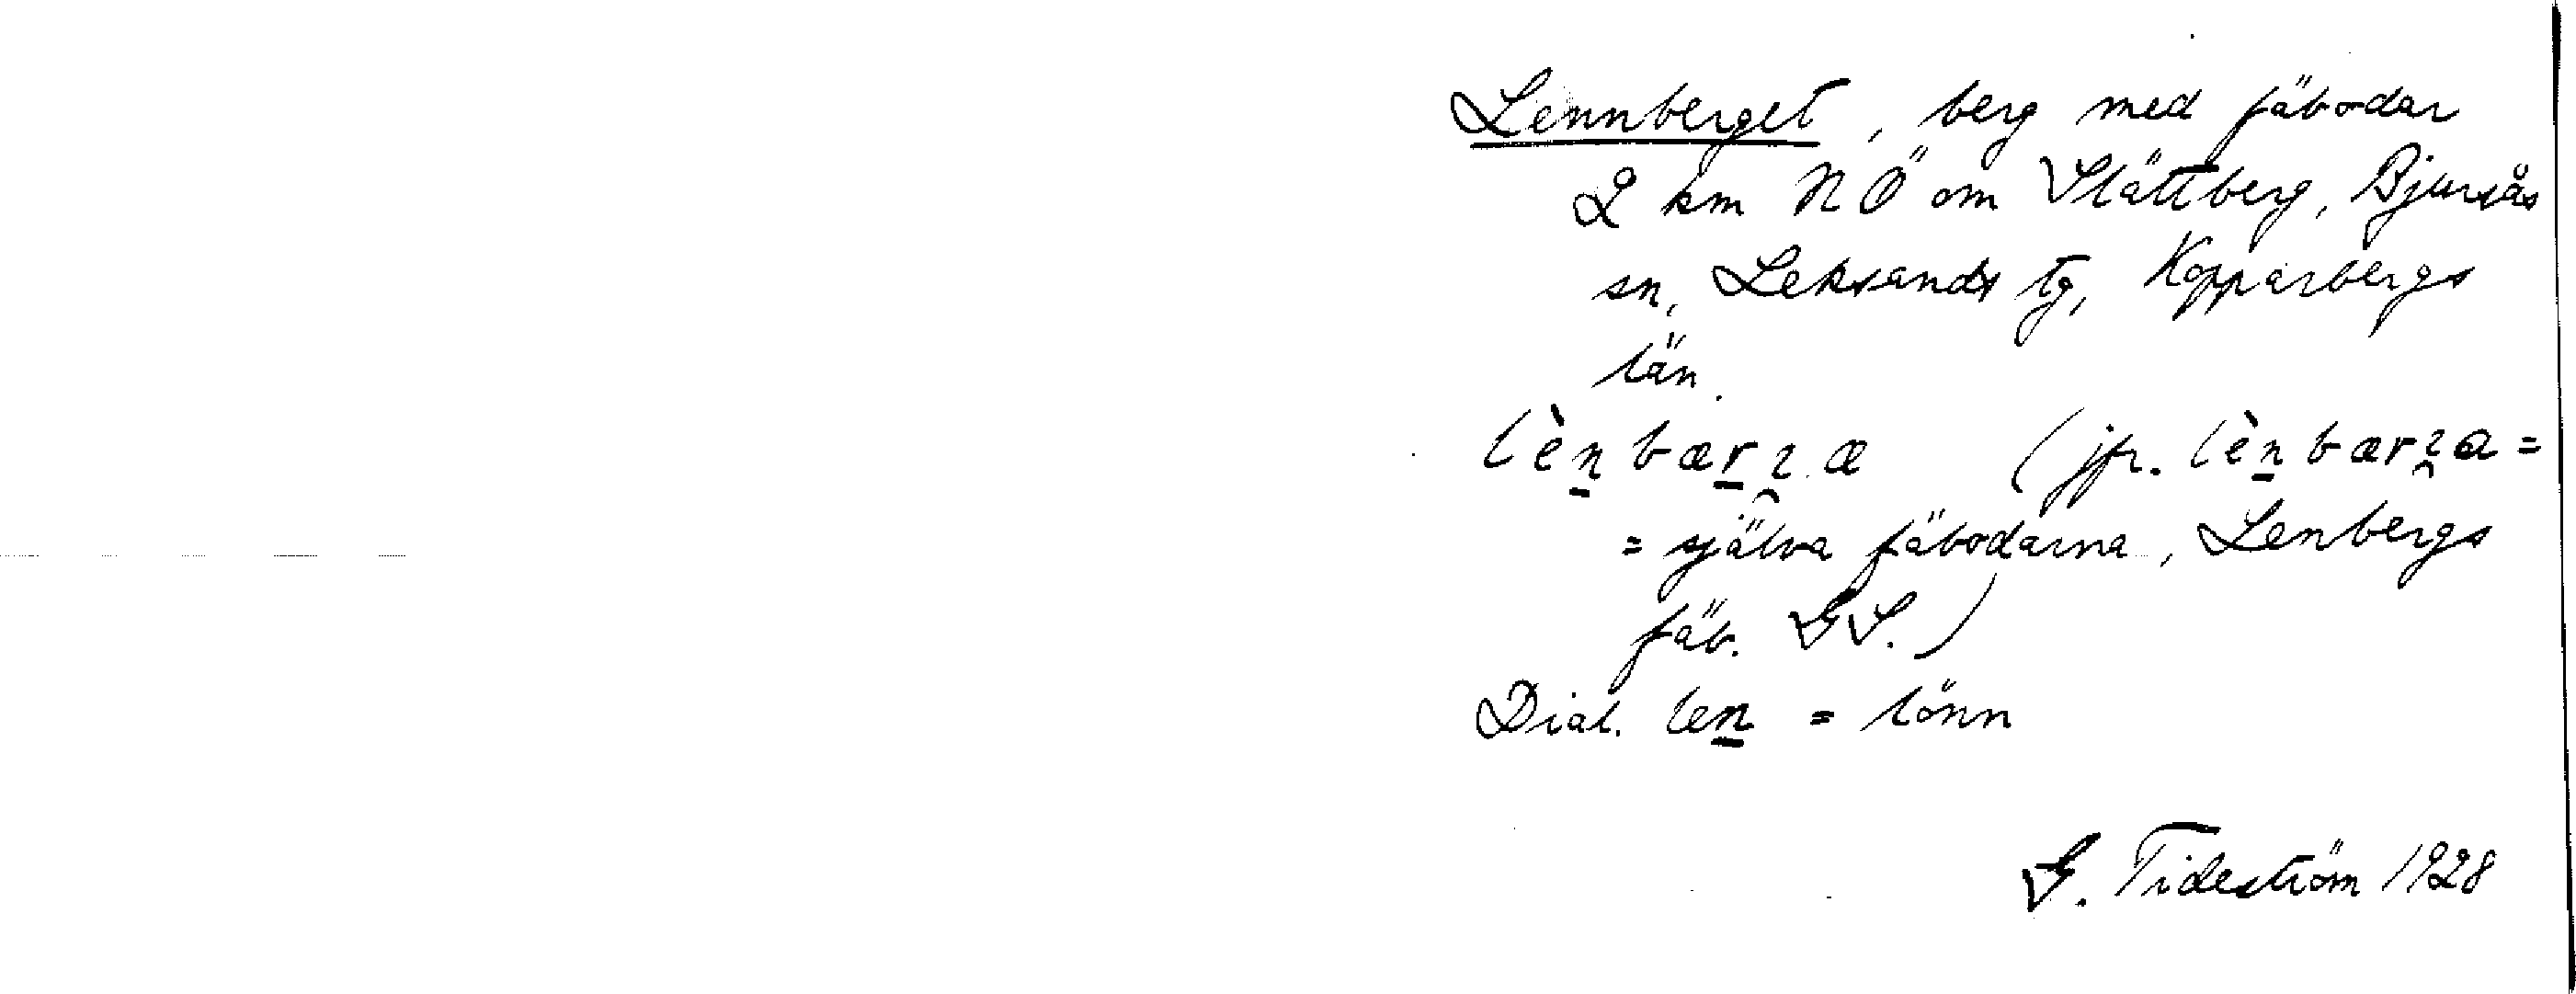 Lennberget, berg med fäbodar
2 km NÖ om Slättberg, Bjursås
sn, Leksands tg, Kopparbergs
län.
lènbærɿæ (jfr. lènbærɿa =
= själva fäbodarna, Lenbergs
fäb. GS.)
Dial. len = lönn
G. Tideström 1928